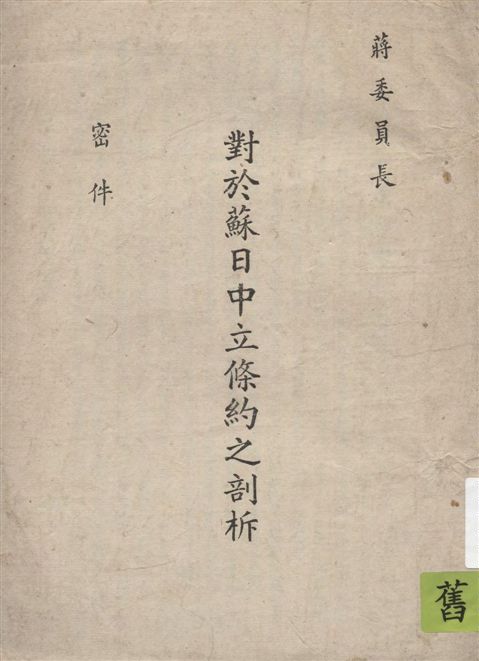 蔣委員長
對於蘇日中立條約之剖析
密件
舊